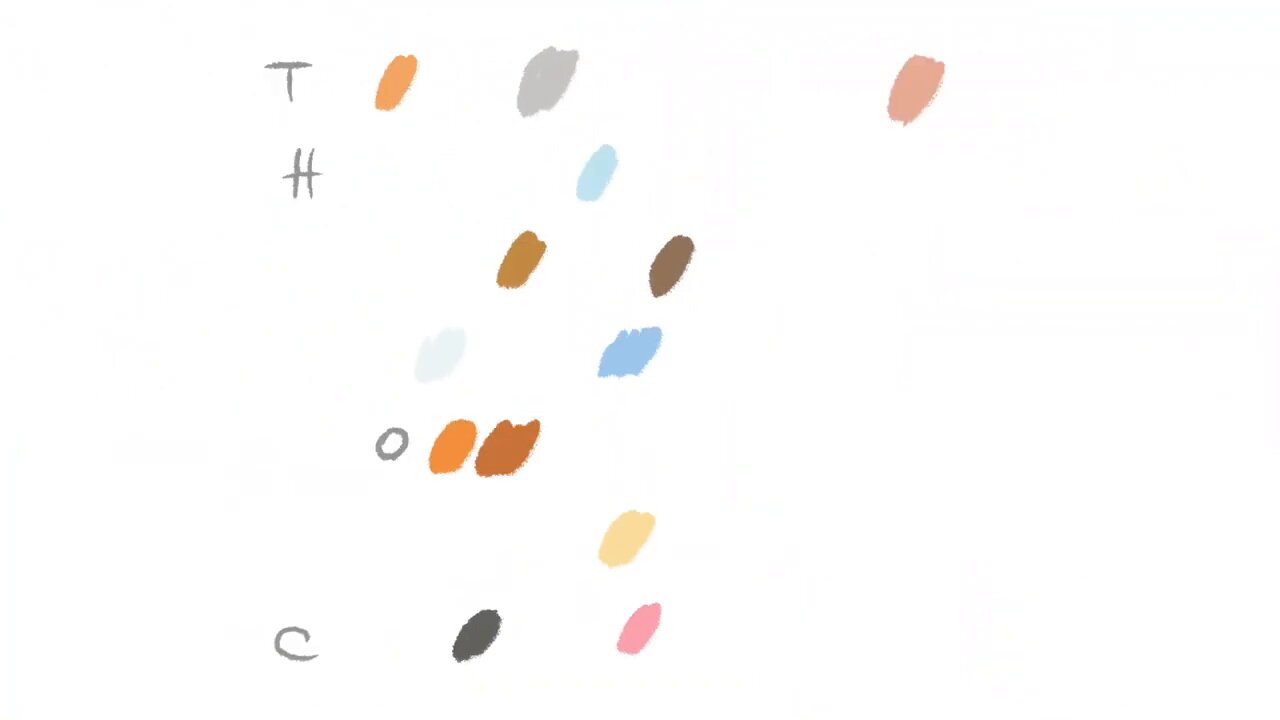 T
H
O
C